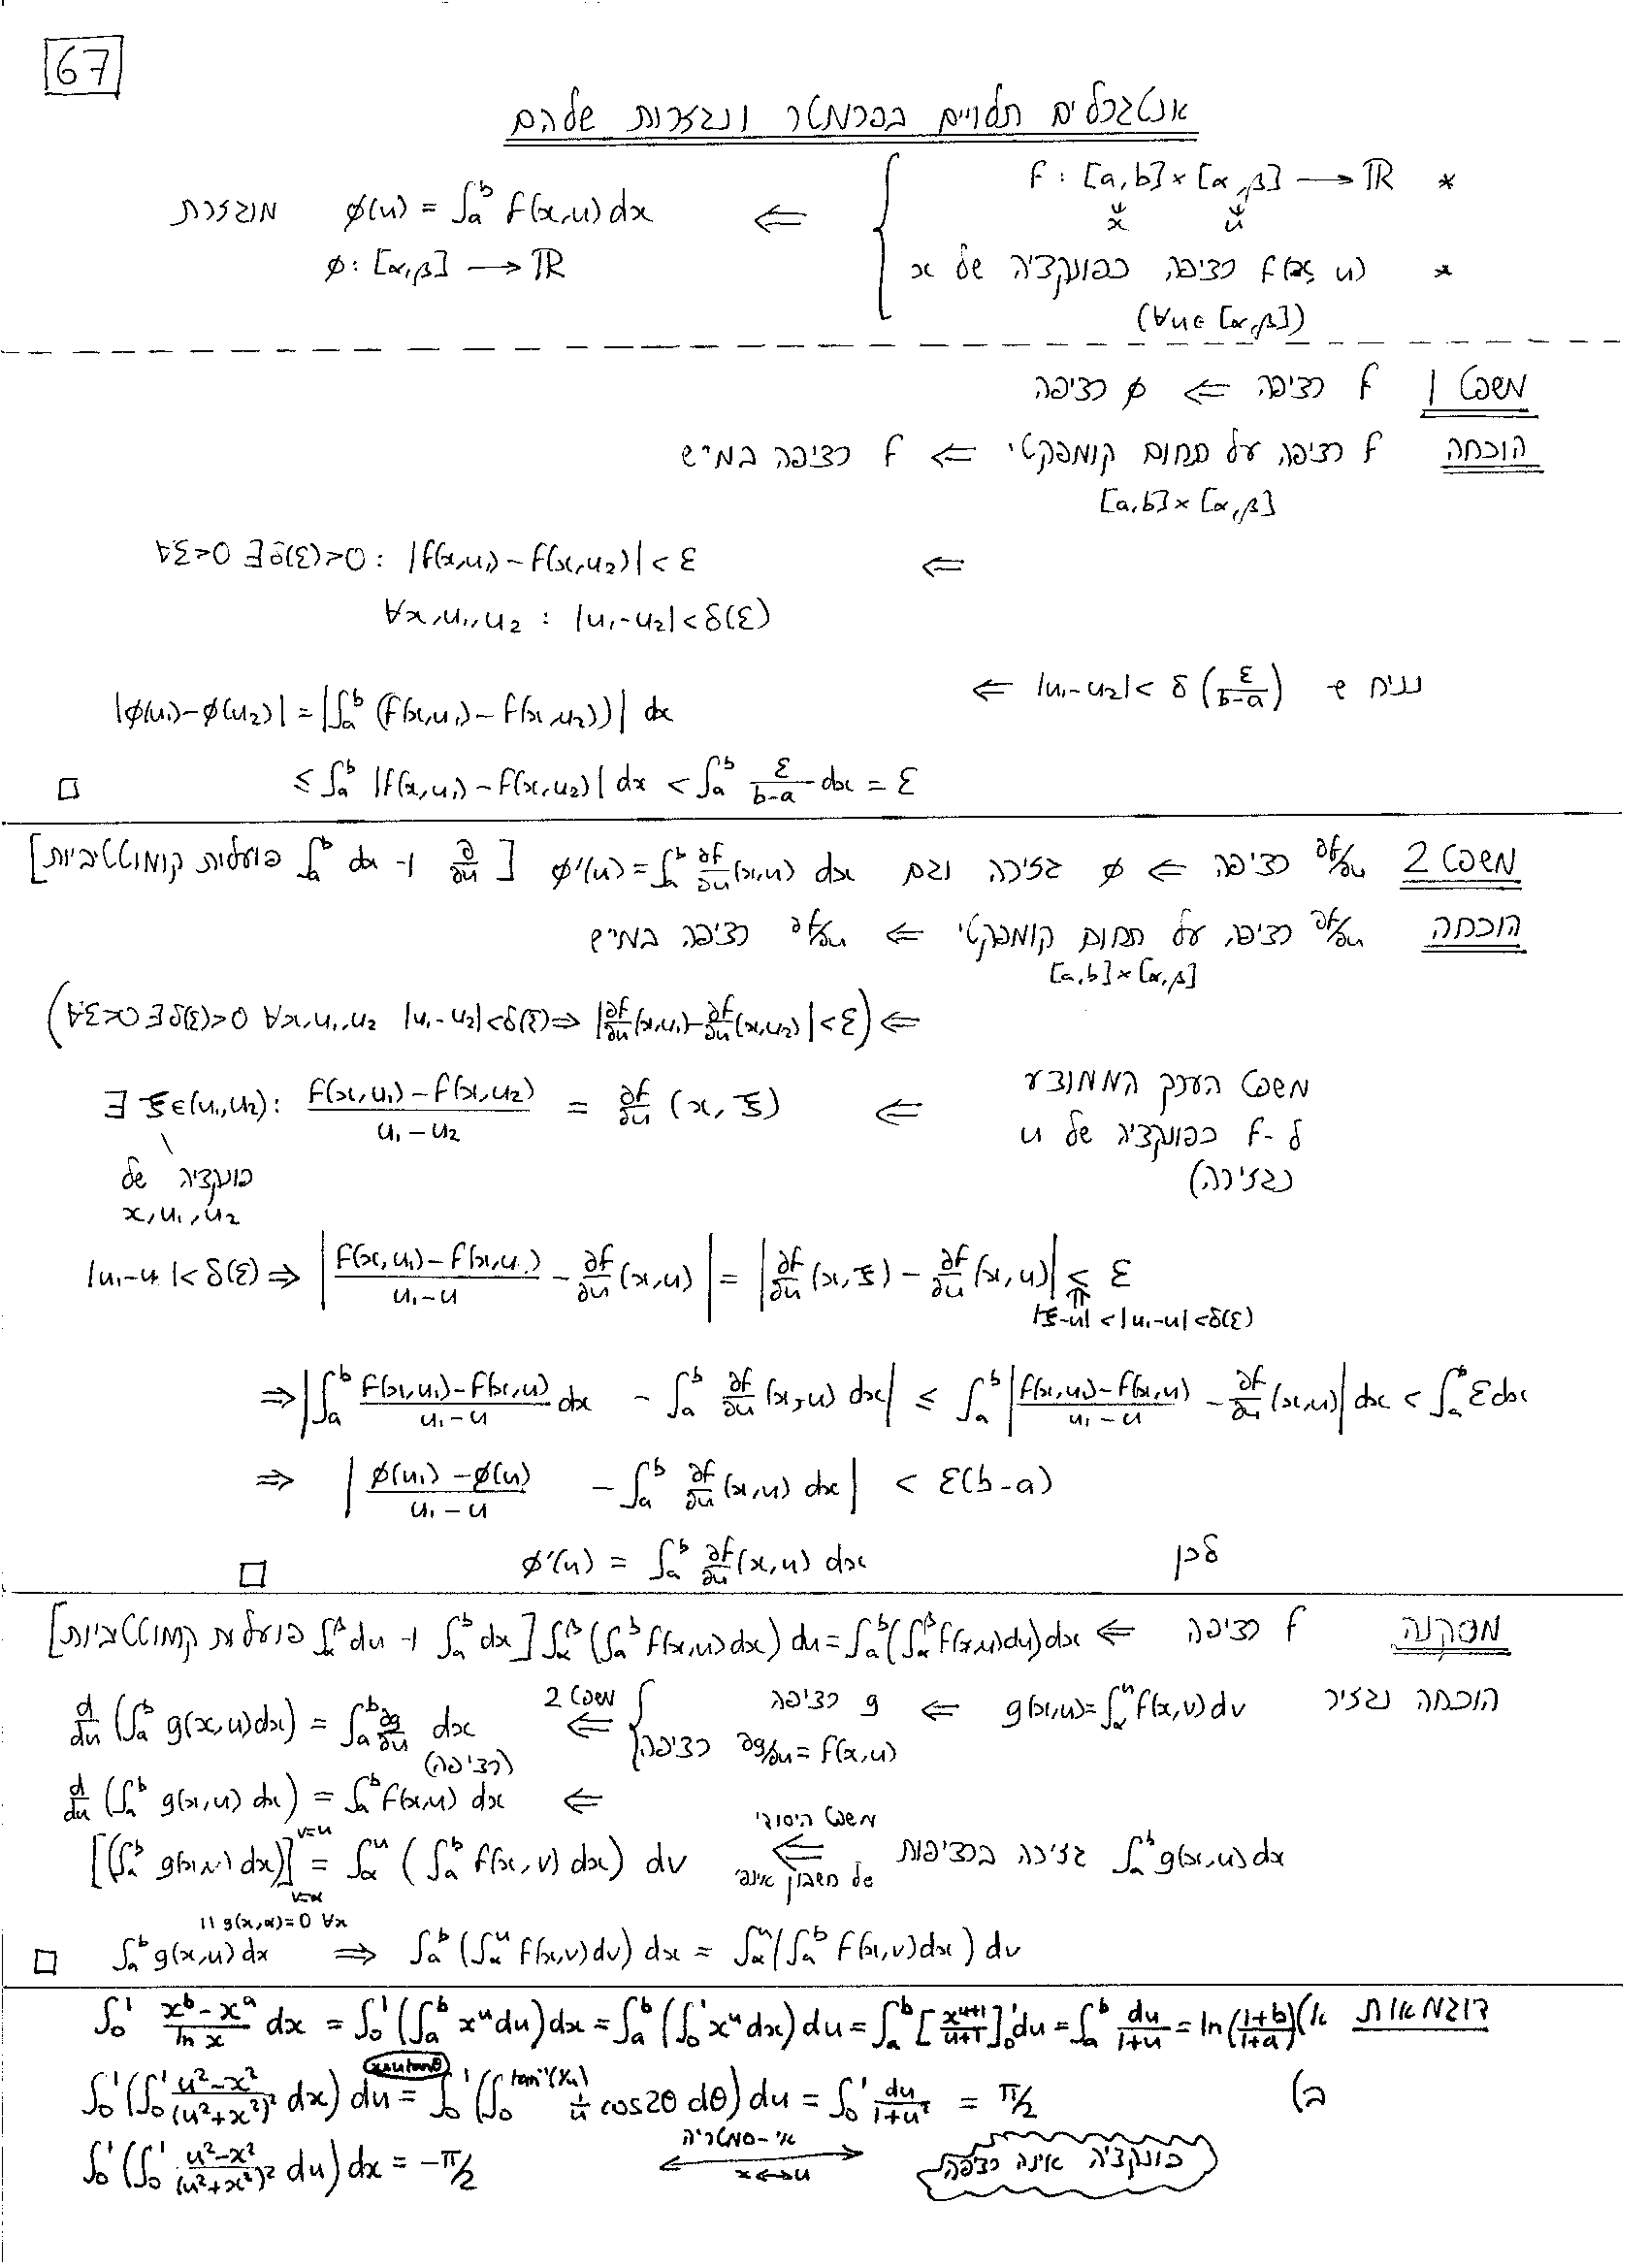 67
אנטגרלים תלויים בפרמטר ונגזרות שלהם
* f : [a,b] × [α,β] → ℝ
x u
* f(x,u) רציפה כפונקציה של x
(∀u∈[α,β])
⇐ φ(u) = ∫ₐᵇ f(x,u) dx מוגדרת
φ : [α,β] → ℝ
משפט 1 f רציפה ⇐ φ רציפה
הוכחה f רציפה על תחום קומפקטי ⇐ f רציפה במ"ש
[a,b] × [α,β]
⇐ ∀ε>0 ∃δ(ε)>0 : |f(x,u₁) - f(x,u₂)| < ε
∀x,u₁,u₂ : |u₁-u₂| < δ(ε)
נניח ש |u₁-u₂| < δ(ε/(b-a)) ⇐
|φ(u₁)-φ(u₂)| = |∫ₐᵇ (f(x,u₁) - f(x,u₂))| dx
≤ ∫ₐᵇ |f(x,u₁) - f(x,u₂)| dx < ∫ₐᵇ ε/(b-a) dx = ε □
משפט 2 ∂f/∂u רציפה ⇐ φ גזירה וגם φ'(u) = ∫ₐᵇ ∂f/∂u (x,u) dx [∂/∂u ו- ∫ₐᵇ dx פועלות קומוטטיביות]
הוכחה ∂f/∂u רציפה על תחום קומפקטי ⇐ ∂f/∂u רציפה במ"ש
[a,b] × [α,β]
⇐ (∀ε>0 ∃δ(ε)>0 ∀x,u₁,u₂ |u₁-u₂|<δ(ε) ⇒ |∂f/∂u (x,u₁) - ∂f/∂u (x,u₂)| < ε)
משפט הערך הממוצע
ל-f כפונקציה של u
(גזירה)
⇐ ∃ ξ∈(u₁,u₂) : (f(x,u₁) - f(x,u₂))/(u₁ - u₂) = ∂f/∂u (x, ξ)
פונקציה של
x,u₁,u₂
|u₁-u| < δ(ε) ⇒ |(f(x,u₁) - f(x,u))/(u₁ - u) - ∂f/∂u (x,u)| = |∂f/∂u (x,ξ) - ∂f/∂u (x,u)| ≤ ε
|ξ-u| < |u₁-u| < δ(ε)
⇒ |∫ₐᵇ (f(x,u₁)-f(x,u))/(u₁-u) dx - ∫ₐᵇ ∂f/∂u (x,u) dx| ≤ ∫ₐᵇ |(f(x,u₁)-f(x,u))/(u₁-u) - ∂f/∂u (x,u)| dx < ∫ₐᵇ ε dx
⇒ |(φ(u₁)-φ(u))/(u₁-u) - ∫ₐᵇ ∂f/∂u (x,u) dx| < ε(b-a)
לכן φ'(u) = ∫ₐᵇ ∂f/∂u (x,u) dx □
מסקנה f רציפה ⇐ ∫_α^β (∫ₐᵇ f(x,u) dx) du = ∫ₐᵇ (∫_α^β f(x,u) du) dx [∫ₐᵇ dx ו- ∫_α^β du פועלות קומוטטיביות]
הוכחה נגדיר g(x,u) = ∫_α^u f(x,v) dv ⇐ g רציפה
∂g/∂u = f(x,u) רציפה
משפט 2 ⇐ d/du (∫ₐᵇ g(x,u) dx) = ∫ₐᵇ ∂g/∂u dx
(רציפה)
⇐ d/du (∫ₐᵇ g(x,u) dx) = ∫ₐᵇ f(x,u) dx
∫ₐᵇ g(x,u) dx גזירה ברציפות
משפט היסודי ⇐ של חשבון אינפי
[(∫ₐᵇ g(x,v) dx)]_{v=α}^{v=u} = ∫_α^u (∫ₐᵇ f(x,v) dx) dv
|| g(x,α)=0 ∀x
∫ₐᵇ g(x,u) dx ⇒ ∫ₐᵇ (∫_α^u f(x,v) dv) dx = ∫_α^u (∫ₐᵇ f(x,v) dx) dv □
דוגמאות א) ∫₀¹ (xᵇ - xᵃ)/(ln x) dx = ∫₀¹ (∫ₐᵇ xᵘ du) dx = ∫ₐᵇ (∫₀¹ xᵘ dx) du = ∫ₐᵇ [xᵘ⁺¹/(u+1)]₀¹ du = ∫ₐᵇ du/(1+u) = ln((1+b)/(1+a))
ב) ∫₀¹ (∫₀¹ (u²-x²)/(u²+x²)² dx) du = ∫₀¹ (∫₀^{tan⁻¹(1/u)} 1/u cos2θ dθ) du = ∫₀¹ du/(1+u²) = π/2
x=utanθ
∫₀¹ (∫₀¹ (u²-x²)/(u²+x²)² du) dx = -π/2
אי-סמטריה
x↔u
פונקציה אינה רציפה